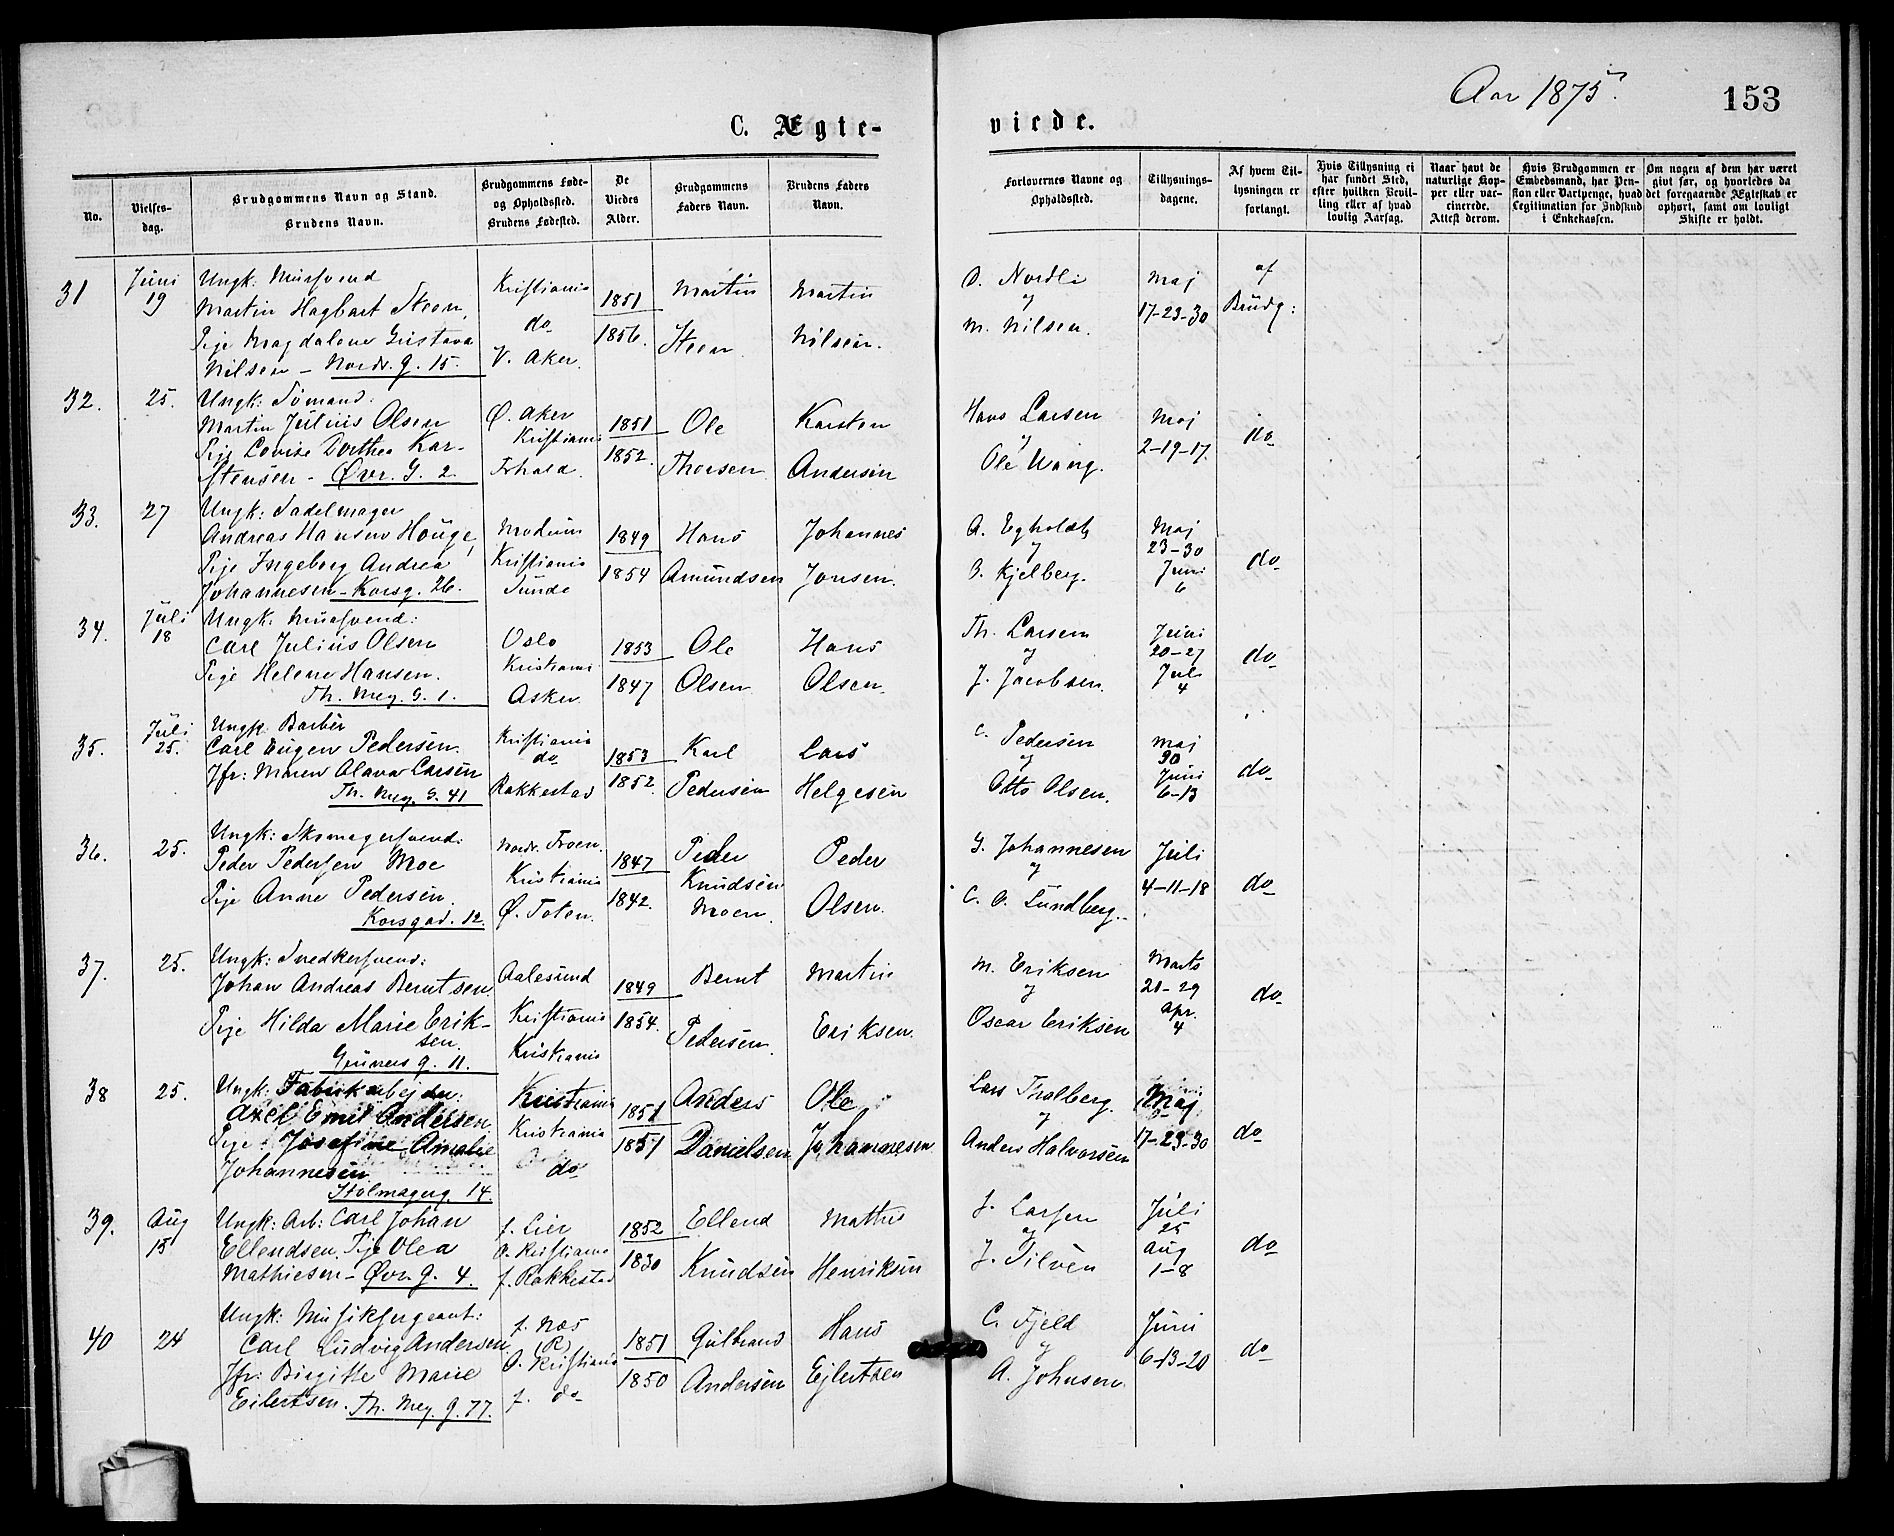 Aar 1875.
153
C. Ægte-
viede.
No.
Vielses-
dag.
Brudgommens Navn og Stand.
Brudens Navn.
Brudgommens Føde-
og Opholdssted.
Brudens Fødested.
De
Viedes
Alder.
Brudgommens
Faders Navn.
Brudens Faders
Navn.
Forlovernes Navne og
Opholdssted.
Tillysnings-
dagene.
Af hvem Til-
lysningen er
forlangt.
Hvis Tillysning ei
har fundet Sted,
efter hvilken Bevil-
ling eller af hvad
lovlig Aarsag.
Naar havt de
naturlige Kop-
per eller var-
cinerede.
Attest derom.
Hvis Brudgommen er
Embedsmand, har Pen-
sion eller Vartpenge, hvad
Legitimation for Indskud
i Enkekassen.
Om nogen af dem har været
givt før, og hvorledes da
det foregaaende Ægteskab er
ophørt, samt om lovligt
Skifte er holdt.
31
Juni
19
Ungk: Mursvend
Martin Hagbart Steen,
Pige Magdalene Gustava
Nilsen - Nordr. g. 15.
Kristiania
do
V. Aker.
1851
1856.
Martin
Steen
Martin
Nilsen.
O. Nordli
og
M. Nilsen.
Maj
17-23-30
af
Brudg:
32.
25.
Ungk: Sømand:
Martin Julius Olsen
Pige Lovise Dorthea Kar-
stensen - Øvr. G. 2.
Ø. Aker
Kristiania
Frhald.
1851
1852.
Ole
Thorsen
Karsten
Andersen
Hans Larsen
og
Ole Wang.
Maj
2-19-17.
do
33.
27
Ungk: Sadelmager
Andreas Hansen Houge,
Pige Ingeborg Andrea
Johannesen - Korsg. 26.
Modum
Kristiania
Sunde
1849
1854
Hans
Amundsen
Johannes
Jonsen.
A. Egholdt
og
B. Kjelberg.
Maj
23-30
Juni
6
do
34.
Juli
18
Ungk. Mursvend:
Carl Julius Olsen
Pige Helene Hansen.
Th. Mey. G. 1.
Oslo
Kristiania
Asker
1853
1847
Ole
Olsen
Hans
Olsen
Th. Larsen
og
J. Jacobsen.
Juni
20-27
Juli
4
do
35.
Juli
25.
Ungk. Barbér
Carl Eugen Pedersen.
Jfr: Maren Olava Larsen
Th. Mey. G. 41
Kristiania
do
Rakkestad
1853
1852.
Karl
Pedersen
Lars
Helgesen
C. Pedersen
og
Otto Olsen.
Maj
30
Juni
6-13
do
36.
25.
Ungk: Skomagersvend:
Peder Pedersen Moe
Pige Anne Pedersen.
Korsgad. 12.
Nordr. Froen.
Kristiania
Ø. Toten.
1847
1842.
Peder
Knudsen
Moen.
Peder
Olsen.
G. Johannesen
og
C. O. Lundberg.
Juli
4-11-18
do
37.
25.
Ungk: Snedkersvend:
Johan Andreas Berntsen.
Pige Hilda Marie Erik-
sen.
Gruners g. 11.
Aalesund
Kristiania
Kristiania
1849
1854.
Bernt
Pedersen.
Martin
Eriksen.
M. Eriksen
og
Oscar Eriksen
Marts
21-29
Apr.
4
do
38
25.
Ungk: Fabrikarbejder:
Axel Emil Andersen
Pige: Josefine Amalie
Johannesen
Stolmagerg. 14.
Kristiania
Kristiania
do
1851
1851
Anders
Danielsen
Ole
Johannesen
Lars Tholberg.
og
Anders Halvorsen
Maj
17-23-30
do
39.
Aug
15
Ungk: Arb: Carl Johan
Ellendsen. Pige Olea
Mathiesen - Øvr. g. 4.
f. Lier
O. Kristiania
f. Rakkestad
1852
1830
Ellend
Knudsen
Mathis
Henriksen
J. Larsen
og
J. Tilven
Juli
25
Aug
1-8
do
40
24
Ungk: Musiksergeant:
Carl Ludvig Andersen
Jfr: Birgitte Marie
Eilertsen. Th. Mey. g. 77.
f. Næs
(R)
O. Kristiania
f. do
1851
1850
Gulbrand
Andersen
Hans
Ejlertsen
C. Fjeld
og
A. Johnsen.
Juni
6-13-20
do